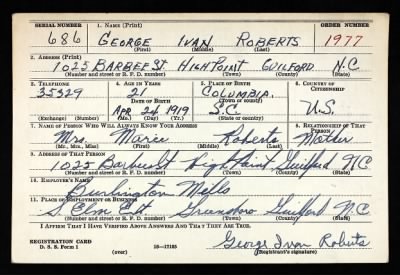 SERIAL NUMBER 1. NAME (Print) ORDER NUMBER
686 GEORGE IVAN ROBERTS 1977
(First) (Middle) (Last)
2. ADDRESS (Print)
1025 BARBEE ST. HIGH POINT GUILFORD N.C.
(Number and street or R. F. D. number) (Town) (County) (State)
3. TELEPHONE 4. AGE IN YEARS 5. PLACE OF BIRTH 6. COUNTRY OF CITIZENSHIP
35329 21 COLUMBIA
DATE OF BIRTH (Town or county)
Apr 24 1919 S.C. U.S.
(Mo.) (Day) (Yr.) (State or country)
7. NAME OF PERSON WHO WILL ALWAYS KNOW YOUR ADDRESS 8. RELATIONSHIP OF THAT PERSON
Mrs Marie Roberts Mother
(Mr., Mrs., Miss) (First) (Middle) (Last)
9. ADDRESS OF THAT PERSON
1025 Barbee St High Point Guilford N.C.
(Number and street or R. F. D. number) (Town) (County) (State)
10. EMPLOYER'S NAME
Burlington Mills
11. PLACE OF EMPLOYMENT OR BUSINESS
S. Elm Ext. Greensboro Guilford N.C.
(Number and street or R. F. D. number) (Town) (County) (State)
I AFFIRM THAT I HAVE VERIFIED ABOVE ANSWERS AND THAT THEY ARE TRUE.
REGISTRATION CARD George Ivan Roberts
D. S. S. Form 1 (over) 16—17105 (Registrant's signature)